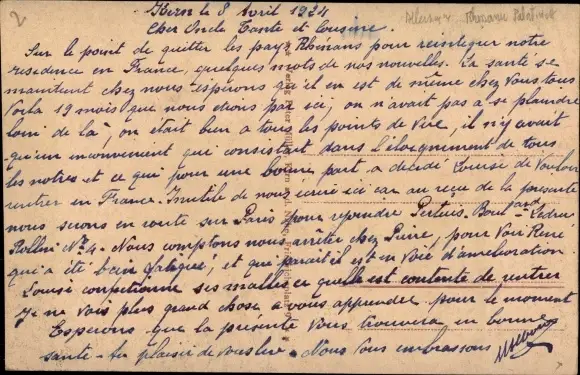 2
Kirn le 8 Avril 1924
Cher Oncle Tante et Cousine.
Sur le point de quitter les pays Rhénans pour reintegrer notre
residence en France, quelques mots de nos nouvelles. La santé se
maintient chez nous Esperons qu'il en est de même chez Vous tous
Voila 19 mois que nous étions par ici, on n'avait pas a se plaindre
loin de là, on était bien a tous les points de Vue, il n'y avait
qu'un inconvenient qui consistait dans l'éloignement de tous
les notres et ce qui pour une bonne part a décidé Louise de Vouloir
rentrer en France. Inutile de nous ecrire ici car au reçu de la presente
nous serons en route sur Paris pour rejoindre Pertuis. Boulevard Ledru
Rollin No 4. Nous comptons nous arrêter chez Pierre, pour Voir René
qui a été bien fatigué, et qui parait il est en Voie d'amelioration
Louise confectionne ses malles et quelle est contente de rentrer
Je ne Vois plus grand chose a vous apprendre pour le moment
Esperons que la présente Vous trouvera en bonne
santé - au plaisir de vous lire - Nous Vous embrassons